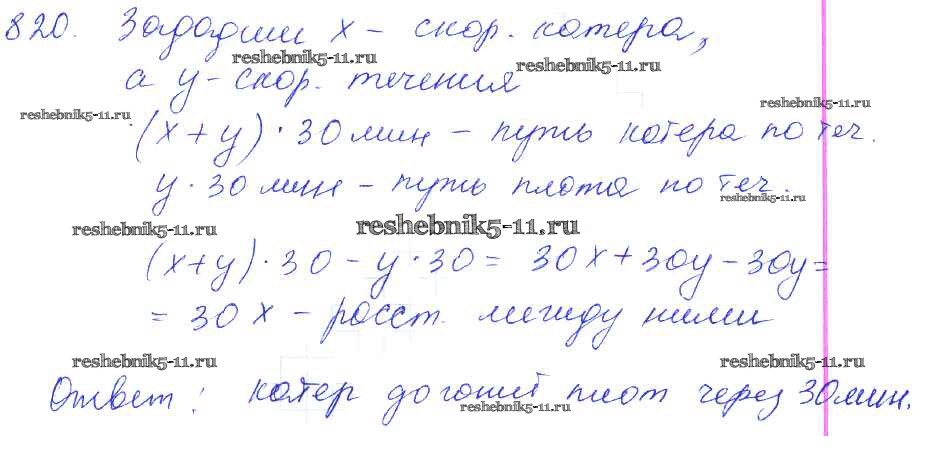 820. Зададим x – скор. катера,
reshebnik5-11.ru
reshebnik5-11.ru
а y – скор. течения
reshebnik5-11.ru
reshebnik5-11.ru
(x + y) · 30 мин – путь катера по теч.
y · 30 мин – путь плота по теч.
reshebnik5-11.ru
reshebnik5-11.ru
reshebnik5-11.ru
(x+y) · 30 – y · 30 = 30x + 30y – 30y =
= 30x – расст. между ними
reshebnik5-11.ru
reshebnik5-11.ru
Ответ: катер догонит плот через 30 мин.
reshebnik5-11.ru